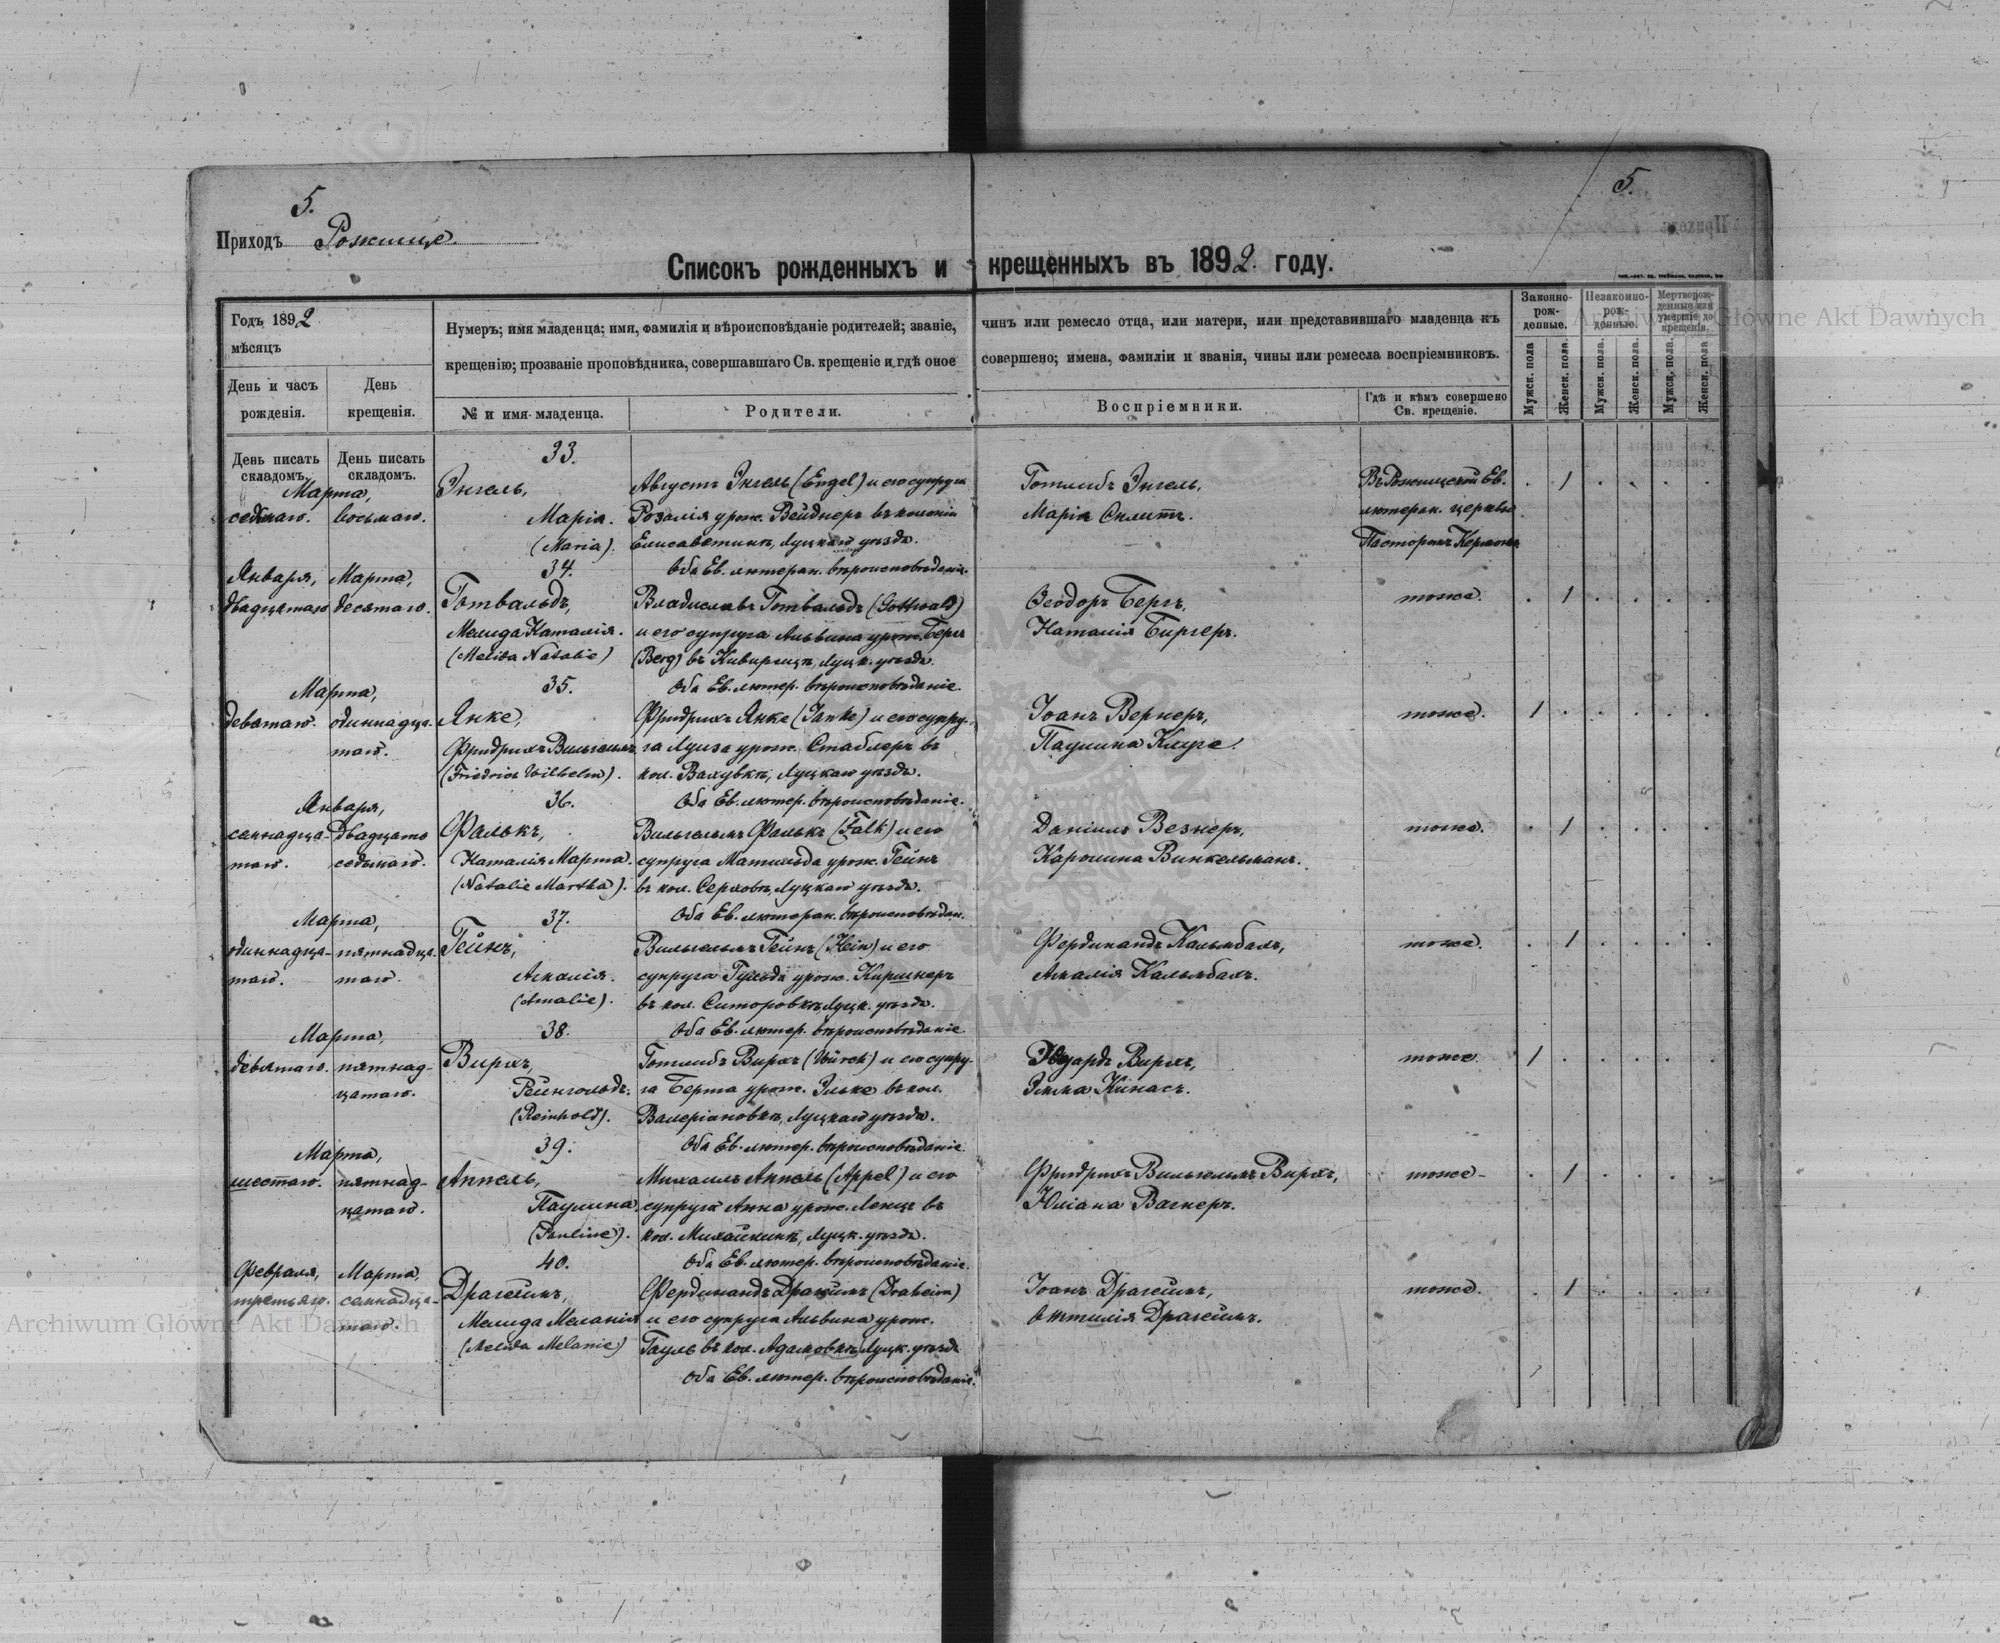 5.
5.
Приходъ Рожище.
Списокъ рожденныхъ и крещенныхъ въ 1892. году.
Годъ 1892
мѣсяцъ
День и часъ рожденія.
День крещенія.
Нумеръ; имя младенца; имя, фамилія и вѣроисповѣданіе родителей; званіе, чинъ или ремесло отца, или матери, или представившаго младенца къ
крещенію; прозваніе проповѣдника, совершавшаго Св. крещеніе и гдѣ оное совершено; имена, фамиліи и званія, чины или ремесла воспріемниковъ.
№ и имя младенца.
Родители.
Воспріемники.
Гдѣ и кѣмъ совершено Св. крещеніе.
Законно-рож-денные.
Незаконно-рож-денные.
Мертворож-денные или умершіе до крещенія.
Мужск. пола
Женск. пола.
Мужск. пола.
Женск. пола.
Мужск. пола.
Женск. пола
День писать складомъ.
День писать складомъ.
33.
Марта,
Энгель, Августъ Энгель (Engel) и его супруга Готлибъ Энгель, Въ Рожищской Ев. 1
седьмаго. восьмаго. Марія. Розалія урож. Вейднеръ въ колоніи Марія Смитъ. лютеран. церкви
(Maria). Елисаветинѣ, Луцкаго уѣзда. Пасторомъ
34. Оба Ев. лютеран. вѣроисповѣданіе.
Января, Марта,
двадцатаго десятаго. Готвальдъ, Владиславъ Готвальдъ (Gottwald) Ѳеодоръ Бергъ, тоже. 1
Мелида Наталія. и его супруга Альвина урож. Бергъ Наталія Биргеръ.
(Melida Natalie) (Berg) въ Киверцахъ, Луцк. уѣзда.
35. Оба Ев. лютер. вѣроисповѣданіе.
Марта,
девятаго. одиннадца- Янке, Фридрихъ Янке (Janke) и его супру- Іоанъ Вернеръ, тоже. 1
таго. Фридрихъ Вильгельмъ га Луиза урож. Стаблеръ въ Паулина Клуге.
(Friedrich Wilhelm). кол. Валувкѣ, Луцкаго уѣзда.
36. Оба Ев. лютер. вѣроисповѣданіе.
Января,
семнадца- двадцать Фалькъ, Вильгельмъ Фалькъ (Falk) и его Даніилъ Везнеръ, тоже. 1
таго. седьмаго. Наталія Марта. супруга Матильда урож. Гейнъ Каролина Винкельманъ.
(Natalie Martha). въ кол. Серховъ, Луцкаго уѣзда.
37. Оба Ев. лютеран. вѣроисповѣдан.
Марта,
одиннадца- пятнадца- Гейнъ, Вильгельмъ Гейнъ (Hein) и его Фердинандъ Кальмбахъ, тоже. 1
таго. таго. Амалія. супруга Гульда урож. Киршнеръ Амалія Кальмбахъ.
(Amalie). въ кол. Ситоровкѣ, Луцк. уѣзда.
38. Оба Ев. лютер. вѣроисповѣданіе.
Марта,
девятаго. пятнад- Вирхъ, Готлибъ Вирхъ (Würch) и его супру- Эдуардъ Вирхъ, тоже. 1
цатаго. Рейнгольдъ. га Берта урож. Эльке въ кол. Эмма Кинасъ.
(Reinhold). Валеріановкѣ, Луцкаго уѣзда.
39. Оба Ев. лютер. вѣроисповѣданіе
Марта,
шестаго. пятнад- Аппель, Михаилъ Аппель (Appel) и его Фридрихъ Вильгельмъ Вирхъ, тоже- 1
цатаго. Паулина. супруга Анна урож. Ленцъ въ Юліана Вагнеръ.
(Pauline). кол. Михайлинѣ, Луцк. уѣзда.
40. Оба Ев. лютер. вѣроисповѣданіе.
Февраля, Марта,
третьяго. семнадца- Драгеймъ, Фердинандъ Драгеймъ (Draheim) Іоанъ Драгеймъ, тоже. 1
таго. Мелида Меланія и его супруга Альвина урож. Оттилія Драгеймъ.
(Melida Melanie) Гауль въ кол. Адамовкѣ, Луцк. уѣзда
Оба Ев. лютер. вѣроисповѣданіе.
Archiwum Główne Akt Dawnych
Archiwum Główne Akt Dawnych